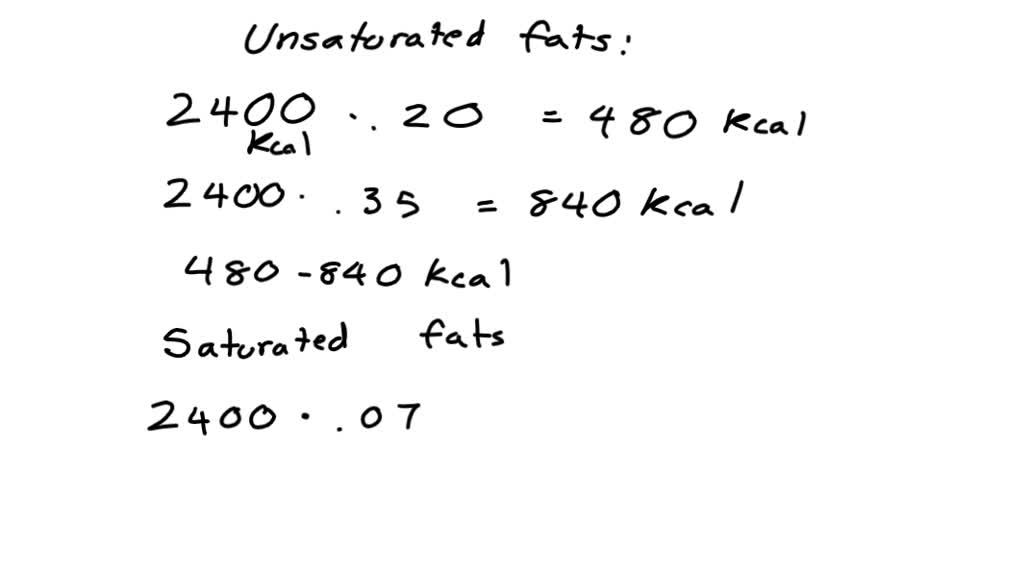 Unsaturated fats:
2400 · .20 = 480 kcal
kcal
2400 · .35 = 840 kcal
480 - 840 kcal
Saturated fats
2400 · .07